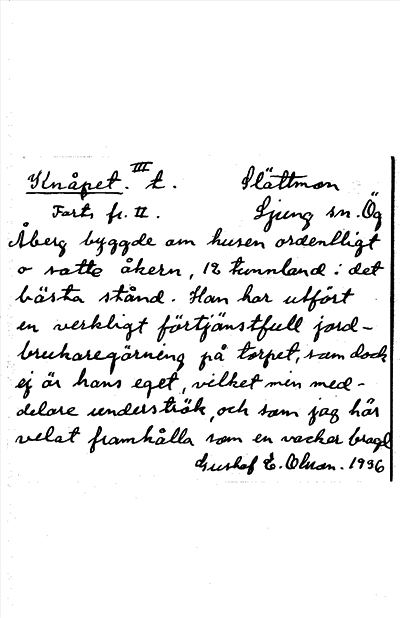 Knåpet. III t. Slättmon
Forts. fr. II. Ljung sn. Ög
Åberg byggde om husen ordentligt
o satte åkern, 12 tunnland i det
bästa stånd. Han har utfört
en verkligt förtjänstfull jord-
brukaregörning på torpet, som dock
ej är hans eget, vilket min med-
delare underströk, och som jag här
velat framhålla som en vacker bragd
Gustaf E. Olsson. 1936